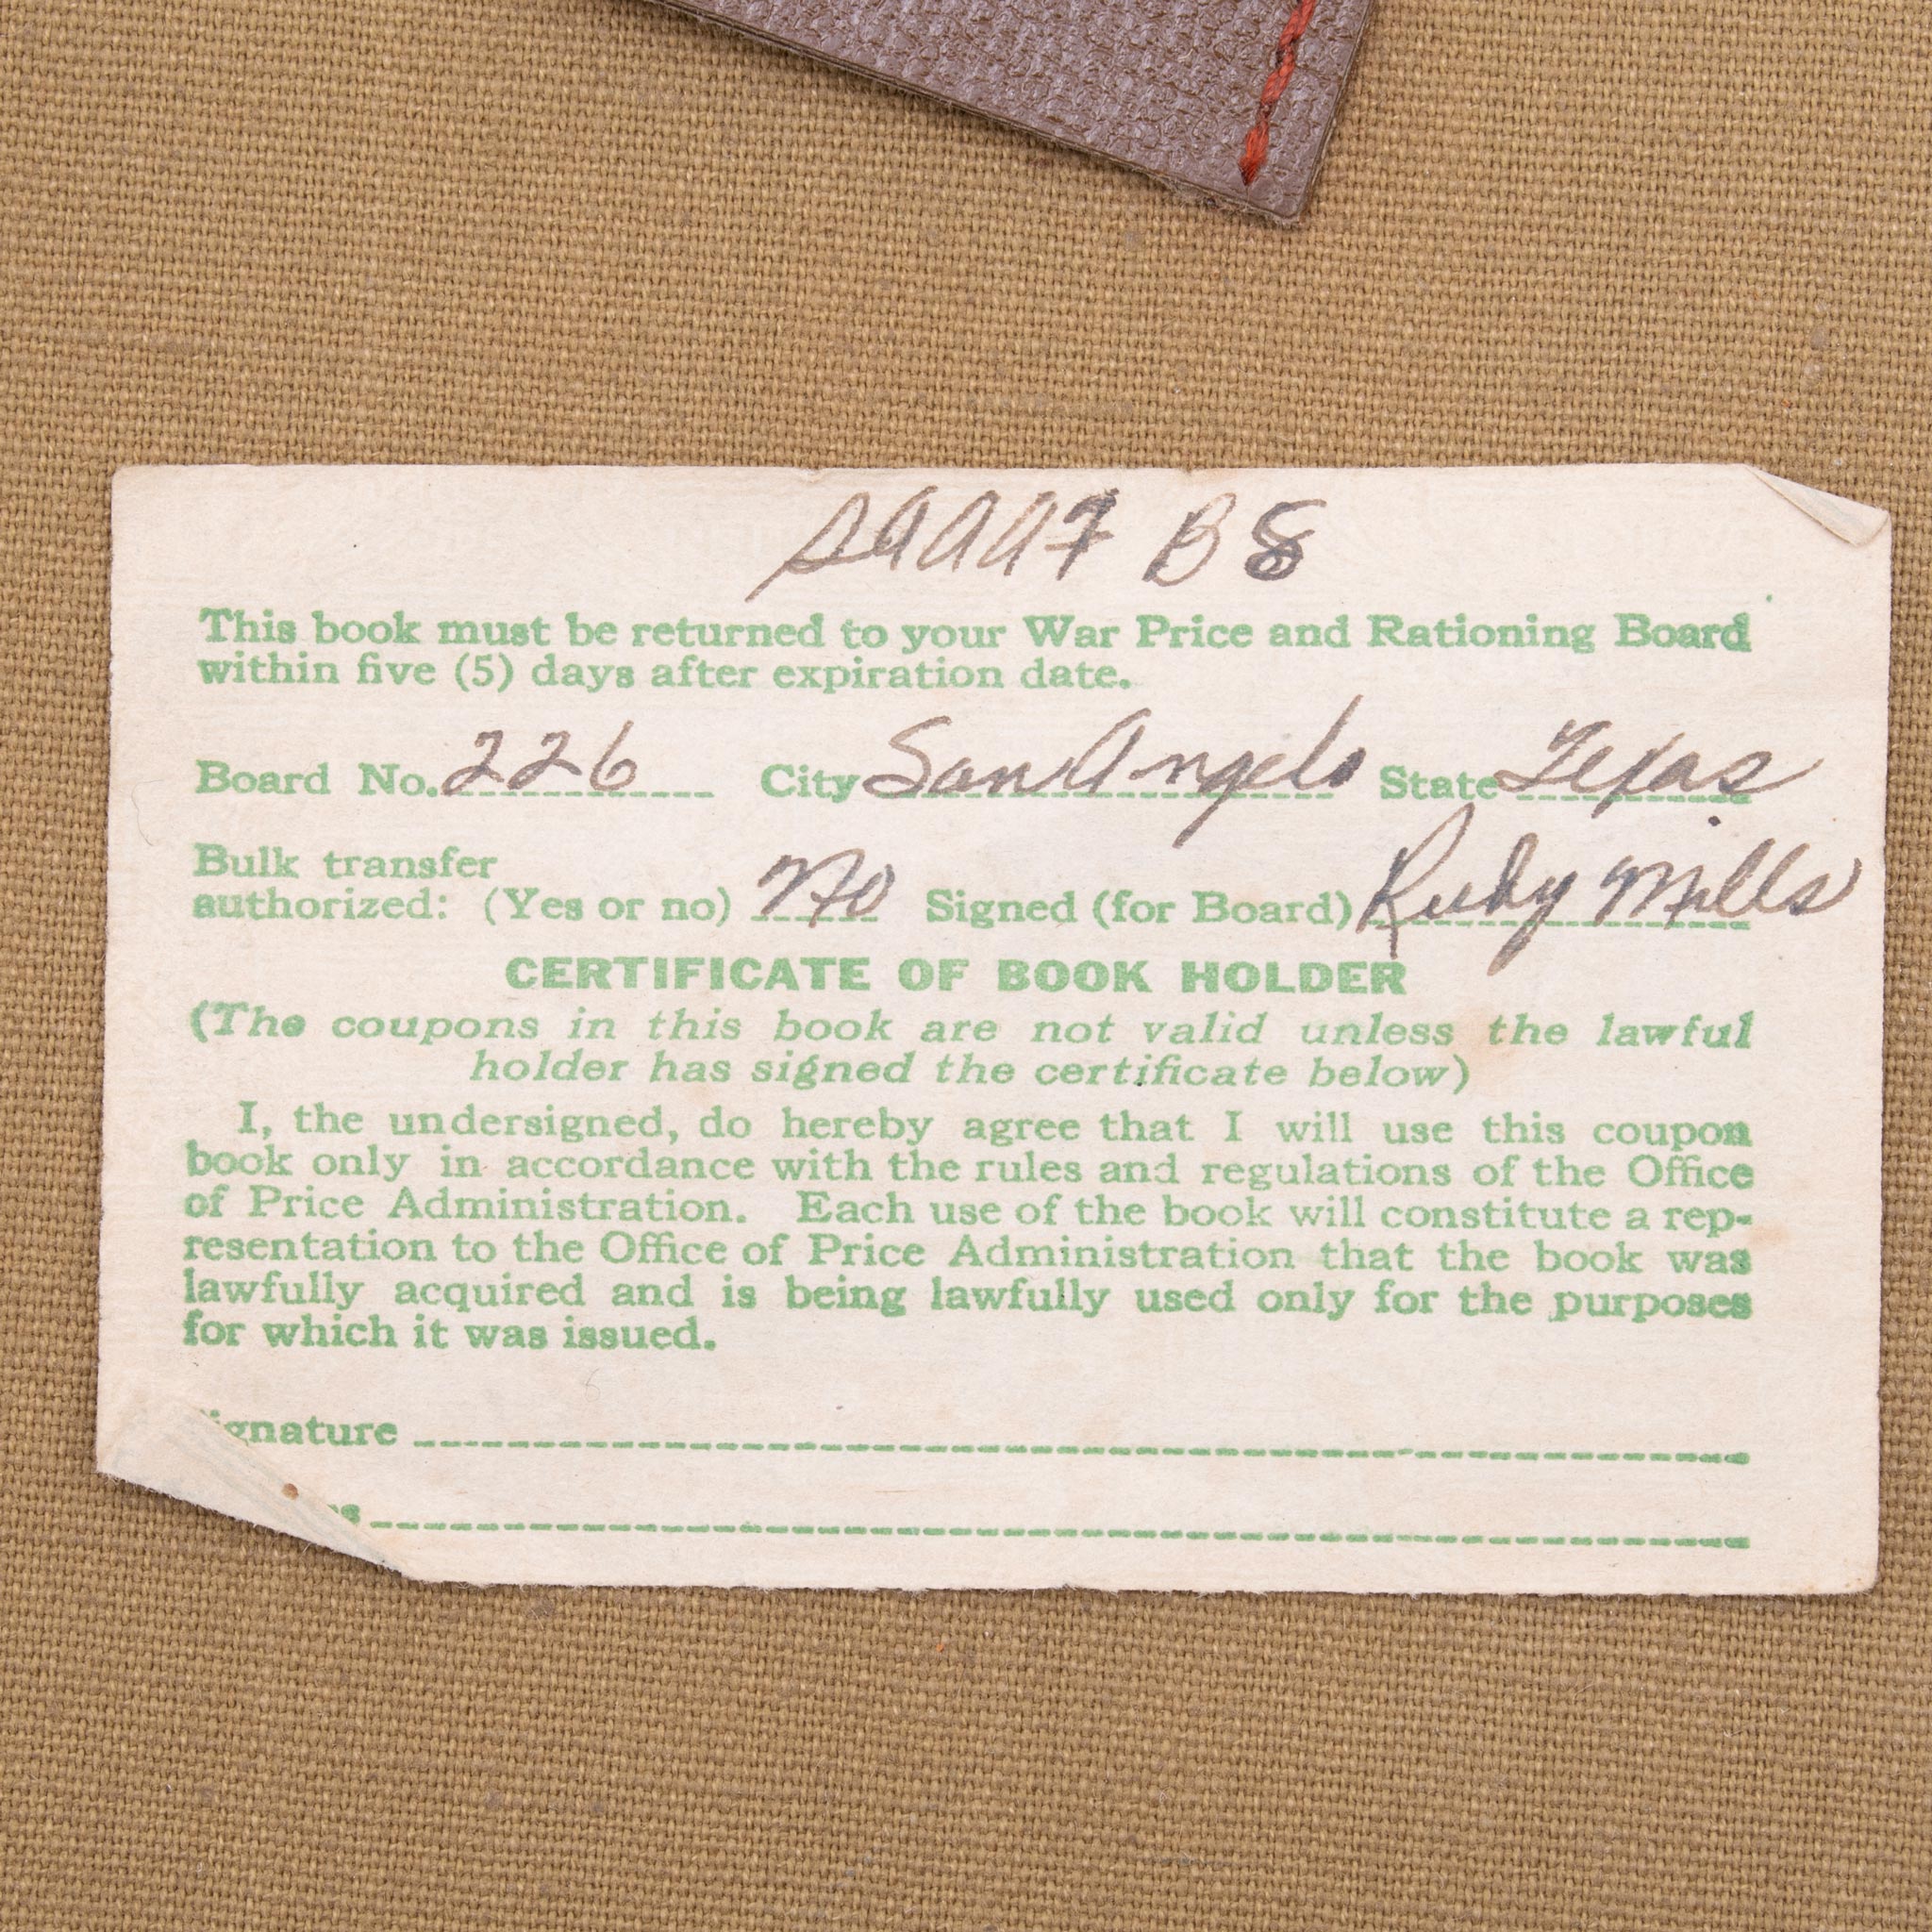 B8
This book must be returned to your War Price and Rationing Board
within five (5) days after expiration date.
Board No. 226 City San Angelo State Texas
Bulk transfer
authorized: (Yes or no) No Signed (for Board) Ruby Mills
CERTIFICATE OF BOOK HOLDER
(The coupons in this book are not valid unless the lawful
holder has signed the certificate below)
I, the undersigned, do hereby agree that I will use this coupon
book only in accordance with the rules and regulations of the Office
of Price Administration. Each use of the book will constitute a rep-
resentation to the Office of Price Administration that the book was
lawfully acquired and is being lawfully used only for the purposes
for which it was issued.
ignature